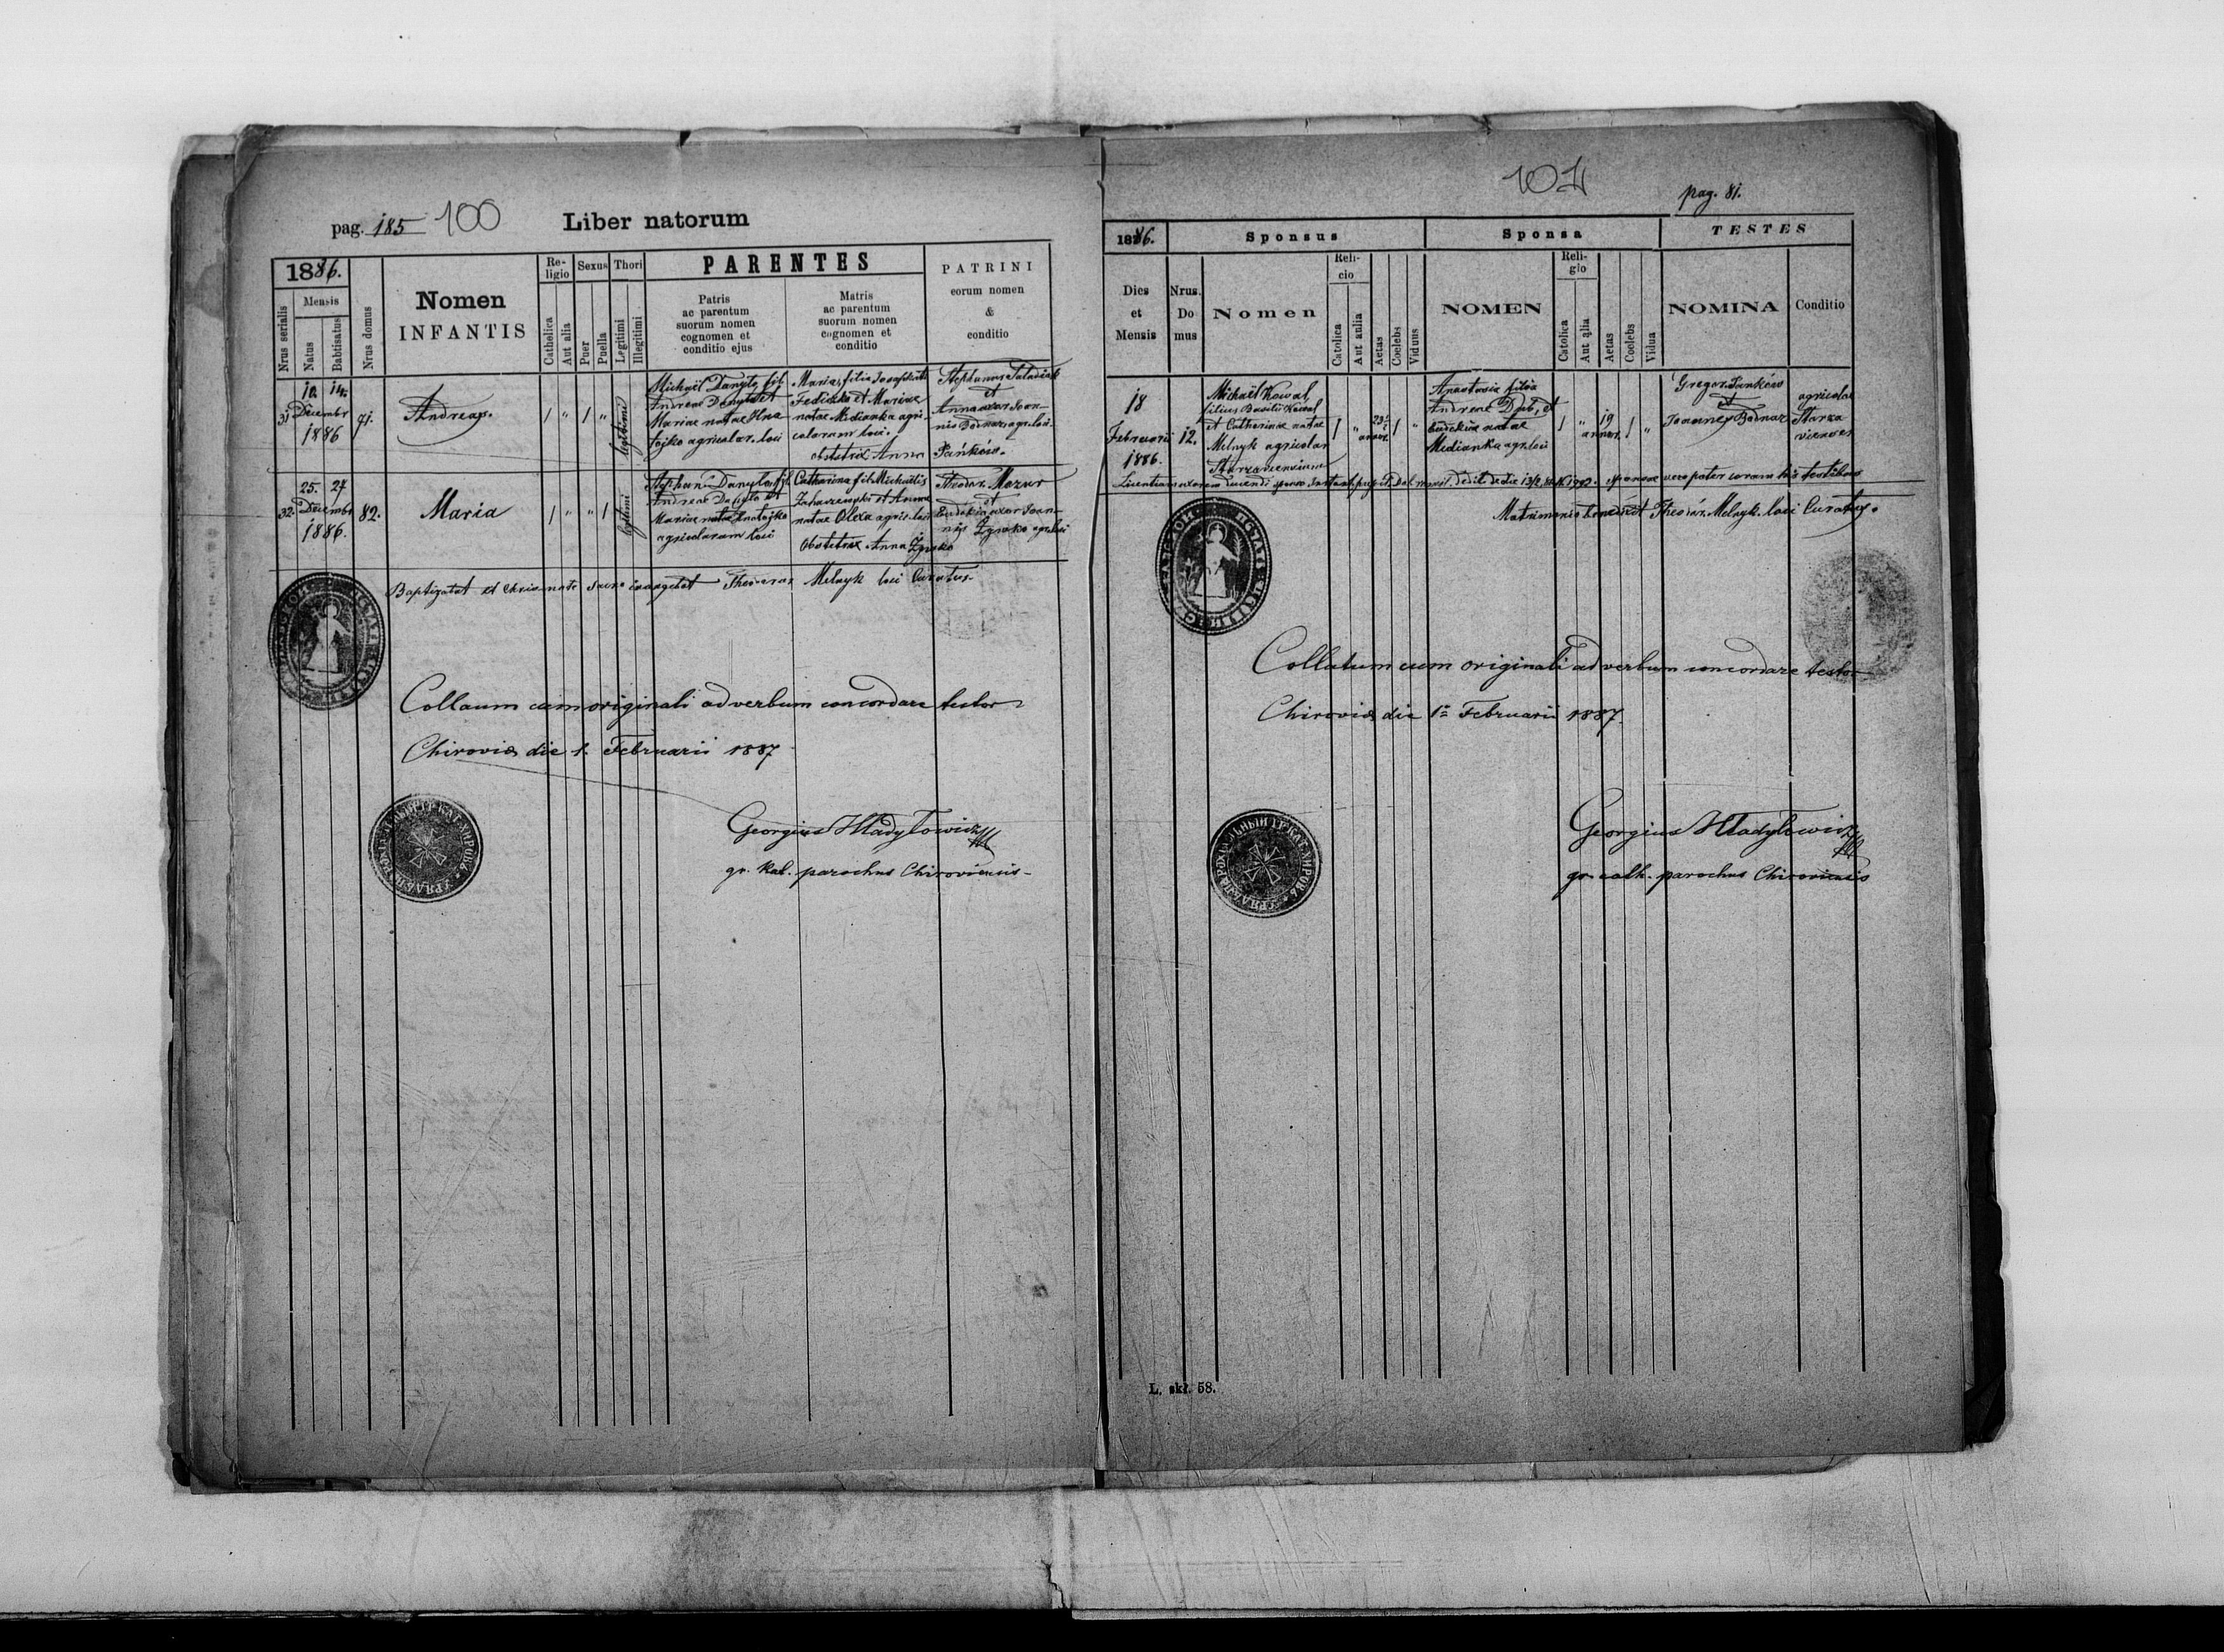 pag. 185 100 Liber natorum
1886.
Nrus serialis
Mensis
Natus
Babtisatus
Nrus domus
Nomen
INFANTIS
Re-
ligio
Catholica
Aut alia
Sexus
Puer
Puella
Thori
Legitimi
Illegitimi
PARENTES
Patris
ac parentum
suorum nomen
cognomen et
conditio ejus
Matris
ac parentum
suorum nomen
cognomen et
conditio
PATRINI
eorum nomen
&
conditio
31
10. 14.
Decembr
1886
91.
Andreas.
1 " 1 "
legitimi
Michaël Danyło fil.
Andreae Danyło et
Mariae natae
agricolar. loci
Maria, filia Josaphati
Fediczko et Mariae
natae Medianka agri-
colarum loci.
obstetrix Anna
Pańków.
Stephanus
et
Anna uxor Joan-
nis Bodnar, agr. loci.
32.
25. 27
Decembr
1886.
82.
Maria
1 " " 1
legitimi
Stephanus Danyło fil.
Andreae Danyło et
Mariae natae
agricolarum loci
Catharina fil. Michaëlis
et Annae
natae Olexa agric. loci
Obstetrix Anna Zywko
Theodor. Mazur
et
Eudokia uxor Joan-
nis Zywko agr. loci
Baptizatit et Chrismate Sacro inungebat Theodorus Melnyk loci Curatus.
Collaum cum originali ad verbum concordare testor
Chiroviae die 1. Februarii 1887
Georgius Hładyłowicz
gr. kat. parochus Chiroviensis
101
pag. 81.
1886.
Sponsus
Sponsa
TESTES
Dies
et
Mensis
Nrus.
Do
mus
Nomen
Reli-
cio
Catolica
Aut aulia
Aetas
Coelebs
Viduus
NOMEN
Reli-
gio
Catolica
Aut alia
Aetas
Coelebs
Vidua
NOMINA
Conditio
18
Februarii
1886.
12.
Michaël Kowal
filius Basilii Kowal
et Catharinae natae
Melnyk agricolar
Starzaviensium
1 " annor. 1 "
Anastasia filia
Andreae Dub, et
Eudokiae natae
Medianka agr. loci
1 " 19 annor. 1 "
Gregor. Pańków
et
Joannes Bodnar
agricolae
Starza
vienses
sponsae vero pater coram his testibus
Matrimonio benedixit Theodor. Melnyk loci Curatus.
Collatum cum originali ad verbum concordare testor
Chiroviae die 1ª Februarii 1887.
Georgius Hładyłowicz
gr. cath. parochus Chiroviensis
L. skł. 58.